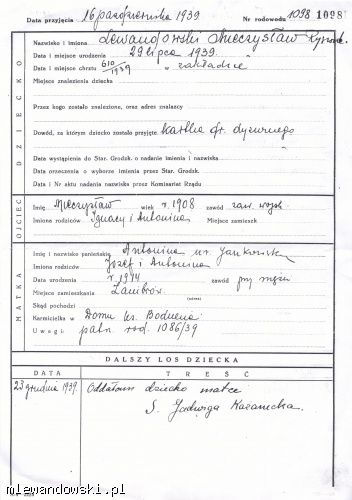 Data przyjęcia 16 października 1939 Nr rodowodu 1098 1098
DZIECKO
Nazwisko i imiona Lewandowski Mieczysław Ryszard
Data i miejsce urodzenia 29 lipca 1939.
Data i miejsce chrztu 610/1939 w zakładzie
Miejsce znalezienia dziecka
Przez kogo zostało znalezione, oraz adres znalazcy
Dowód, za którym dziecko zostało przyjęte kartka dr. dyżurnego
Data wystąpienia do Star. Grodzk. o nadanie imienia i nazwiska
Data orzeczenia o wyborze imienia przez Star. Grodzk.
Data i Nr aktu nadania nazwiska przez Komisariat Rządu
OJCIEC
Imię Mieczysław wiek r. 1908 zawód zaw. wojsk.
Imiona rodziców Ignacy i Antonina Miejsce zamieszk
MATKA
Imię i nazwisko panieńskie Antonina ur. Jankowska
Imiona rodziców Józef i Antonina
Data urodzenia r. 1914 zawód przy mężu
Miejsce zamieszkania Zambrów
(adres)
Skąd pochodzi
Karmicielka w Domu ks. Boduena
Uwagi: patrz rod. 1086/39
DALSZY LOS DZIECKA
DATA TREŚĆ
23 grudnia 1939. Oddałam dziecko matce
S. Jadwiga Kazanecka.
mlewandowski.pl